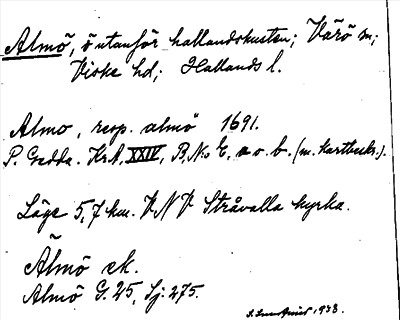 Almö, ö utanför hallandskusten; Värö sn;
Viske hd; Hallands l.
Almo, resp. almö 1691.
P. Gedda. KrA, XXIV, B, No E, a o. b. (m. Kartbeskr.).
Läge 5,7 km. V N V. Stråvalla kyrka.
Almö ek.
Almö G. 25, Sj: 275.
1938.